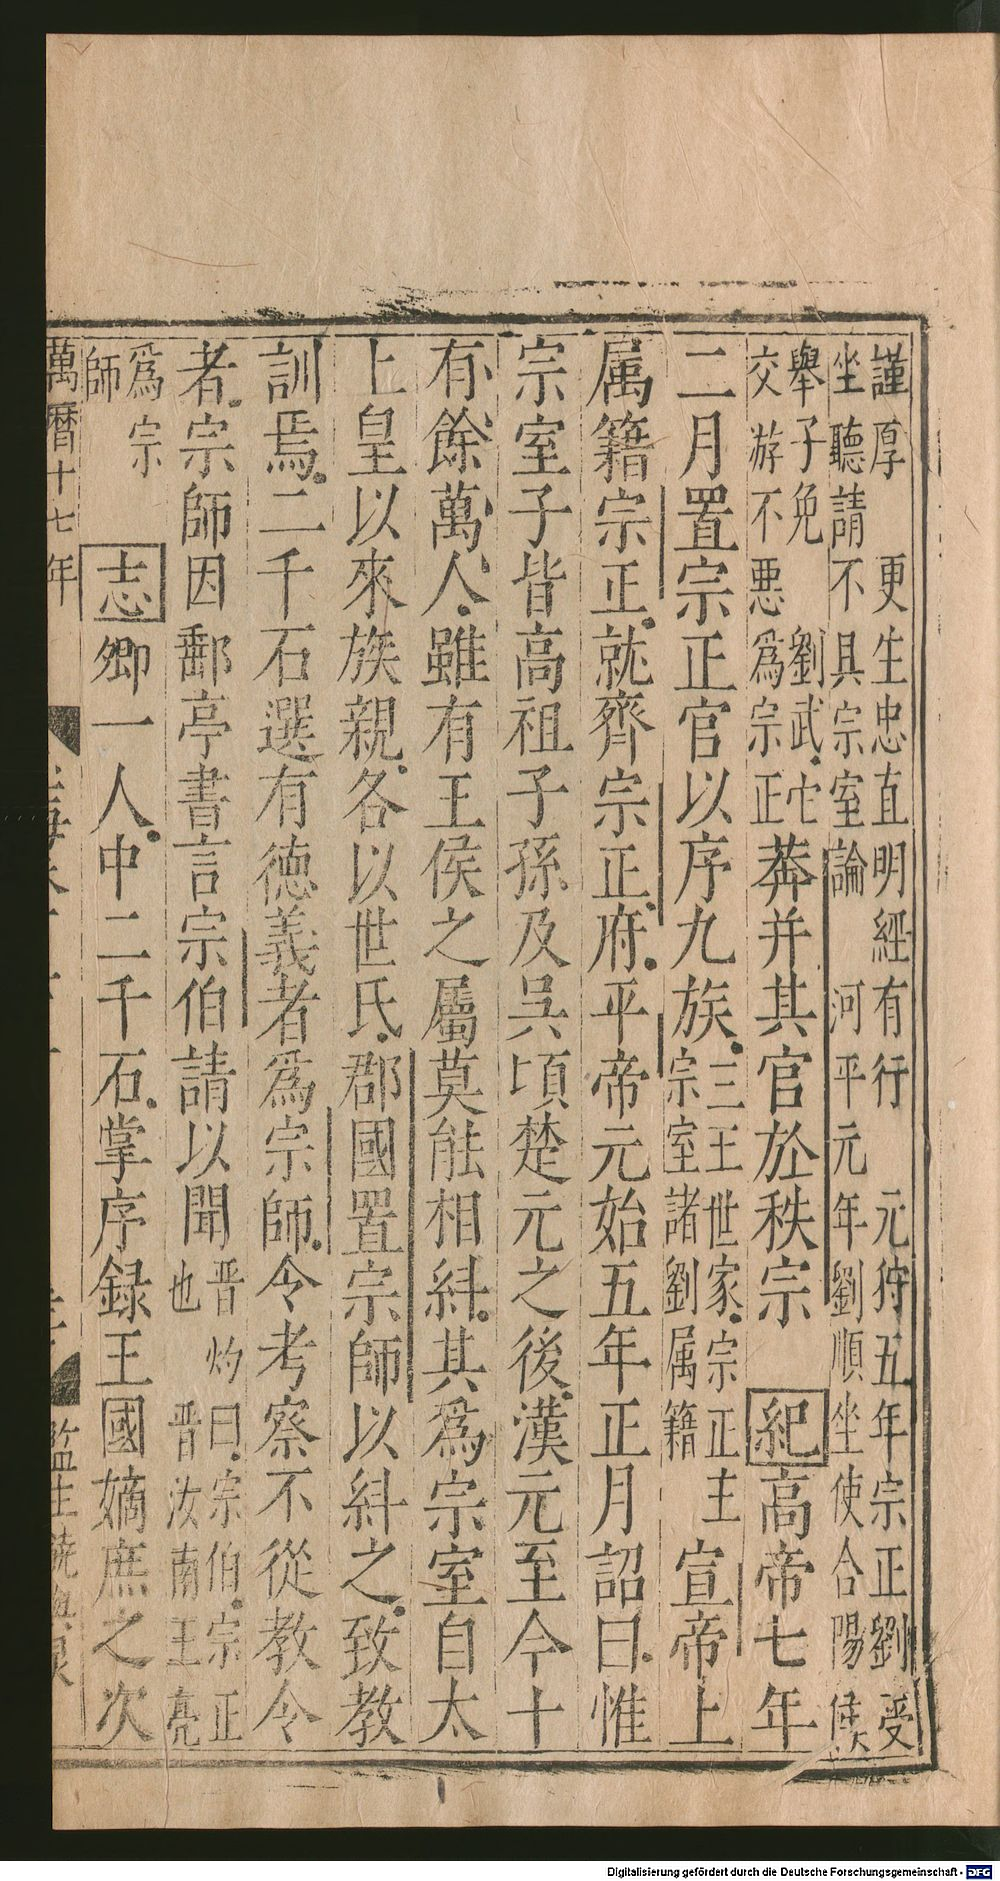 謹厚　更生忠直明經有行　元狩五年宗正劉受
坐聽請不具宗室論　河平元年劉順坐使合陽侯
舉子免　劉武它
交游不惡爲宗正
莾并其官於秩宗　紀高帝七年
二月置宗正官以序九族
三王世家宗正主
宗室諸劉属籍
宣帝上
属籍宗正就齊宗正府平帝元始五年正月詔曰惟
宗室子皆高祖子孫及吳頃楚元之後漢元至今十
有餘萬人雖有王侯之屬莫能相糾其爲宗室自太
上皇以來族親各以世氏郡國置宗師以糾之致教
訓焉二千石選有德義者爲宗師令考察不從教令
者宗師因郵亭書言宗伯請以聞
晋灼曰宗伯宗正
也　晋汝南王亮
爲宗
師
志卿一人中二千石掌序録王國嫡庶之次
萬曆十七年
監生
Digitalisierung gefördert durch die Deutsche Forschungsgemeinschaft - DFG